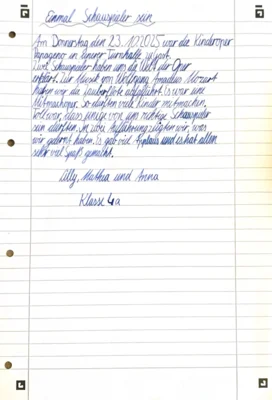 Einmal Schauspieler sein
Am Donnerstag den 23.10.2025 war die Kinderoper
Papageno in unserer Turnhalle zu gast.
Zwei Schauspieler haben uns die Welt der Oper
erklärt. Zur Musik von Wolfgang Amadeus Mozart
haben wir die Zauberflöte aufgeführt. Es war eine
Mitmachoper. So durften viele Kinder mitmachen.
Toll war, dass einige von uns richtige Schauspieler
sein durften. In der Aufführung zeigten wir, was
wir geprobt haben. Es gab viel Applaus und es hat allen
sehr viel Spaß gemacht.
Ally, Mathea und Anna
Klasse 4a